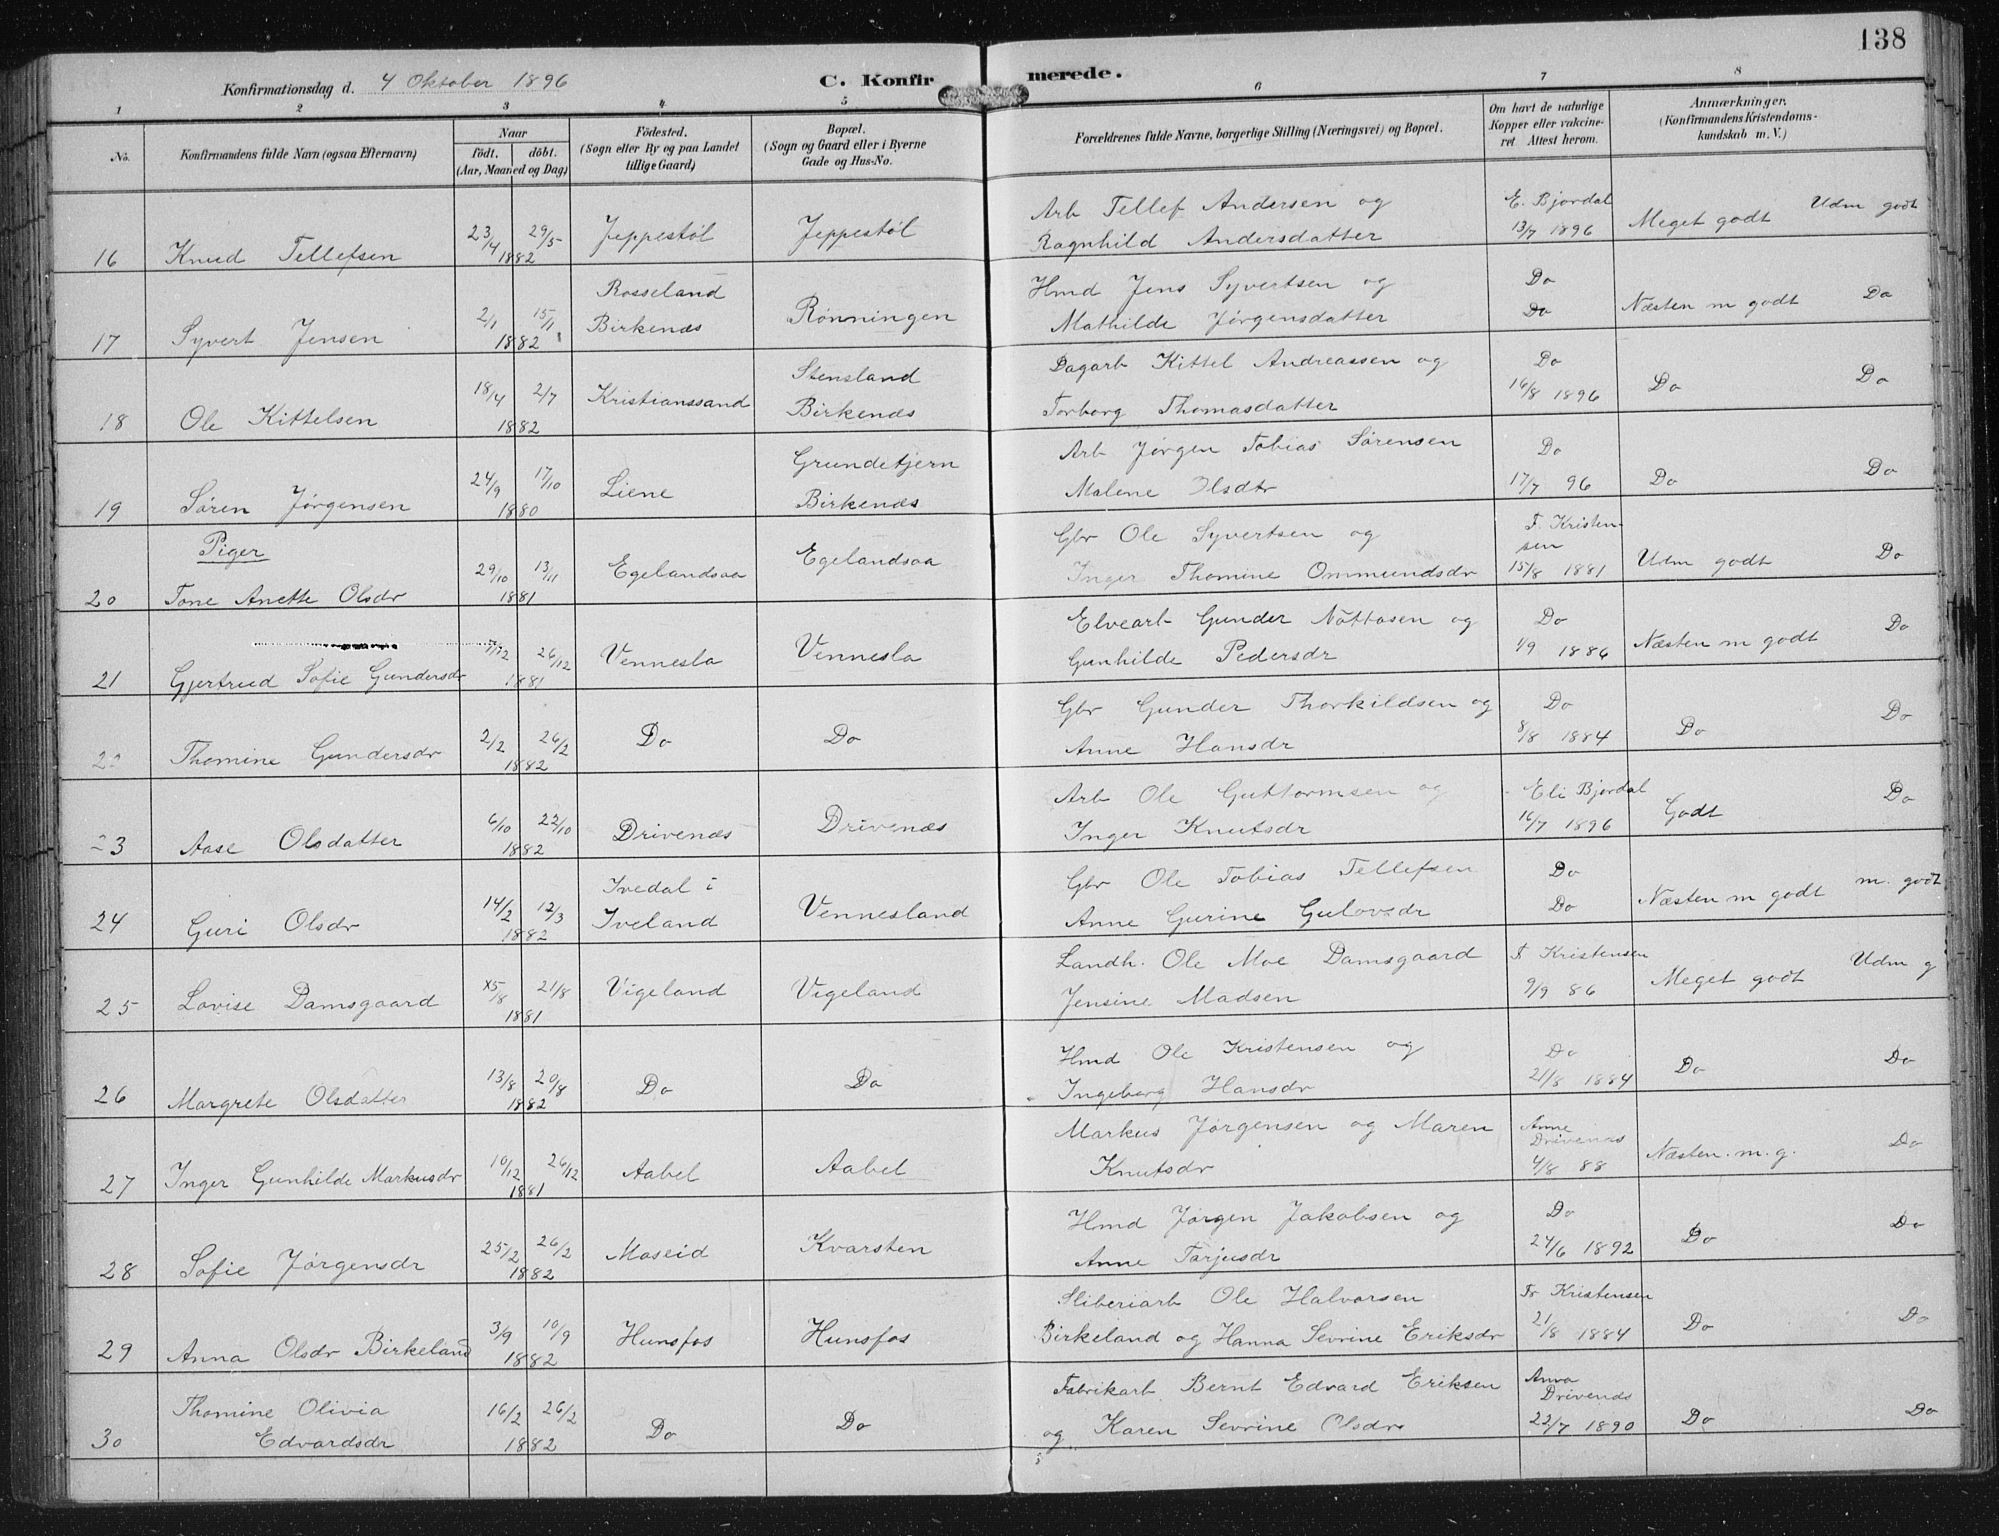 138
Konfirmationsdag d. 4 Oktober 1896
C. Konfirmerede.
1 2 3 4 5 6 7 8
No. Konfirmandens fulde Navn (ogsaa Efternavn) Naar født. døbt. (Aar, Maaned og Dag) Fødested. (Sogn eller By og paa Landet tillige Gaard) Bopæl. (Sogn og Gaard eller i Byerne Gade og Hus-No. Forældrenes fulde Navne, borgerlige Stilling (Næringsvei) og Bopæl. Om havt de naturlige Kopper eller vakcineret Attest herom. Anmærkninger. (Konfirmandens Kristendomskundskab m. V.)
16 Knud Tellefsen 23/4 29/5 1882 Jeppestøl Jeppestøl Arb Tellef Andersen og Ragnhild Andersdatter E. Bjordal 13/7 1896 Meget godt Udm godt
17 Syvert Jensen 2/1 15/1 1882 Rosseland Birkenæs Rønningen Hmd Jens Syvertsen og Mathilde Jørgensdatter Do Do Næsten m godt Do
18 Ole Kittelsen 18/4 2/7 1882 Kristianssand Stensland Birkenæs Dagarb Kittel Andreassen og Torborg Thomasdatter Do 16/8 1896 Do Do
19 Søren Jørgensen 24/9 17/10 1880 Liene Grundetjern Birkenæs Arb Jørgen Tobias Sørensen Malene Olsdtr Do 17/7 96 Do Do
Piger
20 Tone Anette Olsdr 29/10 13/11 1881 Egelandsaa Egelandsaa Gbr Ole Syvertsen og Inger Thomine Ommundsdr F. Kristensen 15/8 1881 Udm godt Do
21 Gjertrud Sofie Gundersdr 7/12 26/12 1881 Vennesla Vennesla Elvearb Gunder Nottosen og Gunhilde Pedersdr Do 1/9 1886 Næsten m godt Do
22 Thomine Gundersdr 2/2 26/2 1882 Do Do Gbr Gunder Thorkildsen og Anne Hansdr Do 8/8 1884 Do Do
23 Aase Olsdatter 6/10 22/10 1882 Drivenæs Drivenæs Arb Ole Guttormsen og Inger Knutsdr Eli Bjordal 16/7 1896 Godt Do
24 Guri Olsdr 14/2 12/3 1882 Ivedal i Iveland Vennesland Gbr Ole Tobias Tellefsen Anne Gurine Gulovsdr Do Do Næsten m godt m. godt
25 Lovise Damsgaard 5/8 21/8 1881 Vigeland Vigeland Landh. Ole Moe Damsgaard Jensine Madsen F Kristensen 9/9 86 Meget godt Udm g
26 Margrete Olsdatter 13/8 20/8 1882 Do Do Hmd Ole Kristensen og Ingeborg Hansdr Do 21/8 1884 Do Do
27 Inger Gunhilde Markusdr 10/12 26/12 1881 Aabel Aabel Markus Jørgensen og Maren Knutsdr Anne Drivenæs 4/8 88 Næsten. m. g. Do
28 Sofie Jørgensdr 25/2 26/2 1882 Moseid Kvarsten Hmd Jørgen Jakobsen og Anne Tarjusdr Do 24/6 1892 Do Do
29 Anna Olsdr Birkeland 3/9 10/9 1882 Hunsfos Hunsfos Sliberiarb Ole Halvorsen Birkeland og Hanna Sevrine Eriksdr Fr Kristensen 21/8 1884 Do Do
30 Thomine Olivia Edvardsdr 16/2 26/2 1882 Do Do Fabrikarb Bernt Edvard Eriksen og Karen Sevrine Olsdr Anna Drivenæs 22/7 1890 Do Do